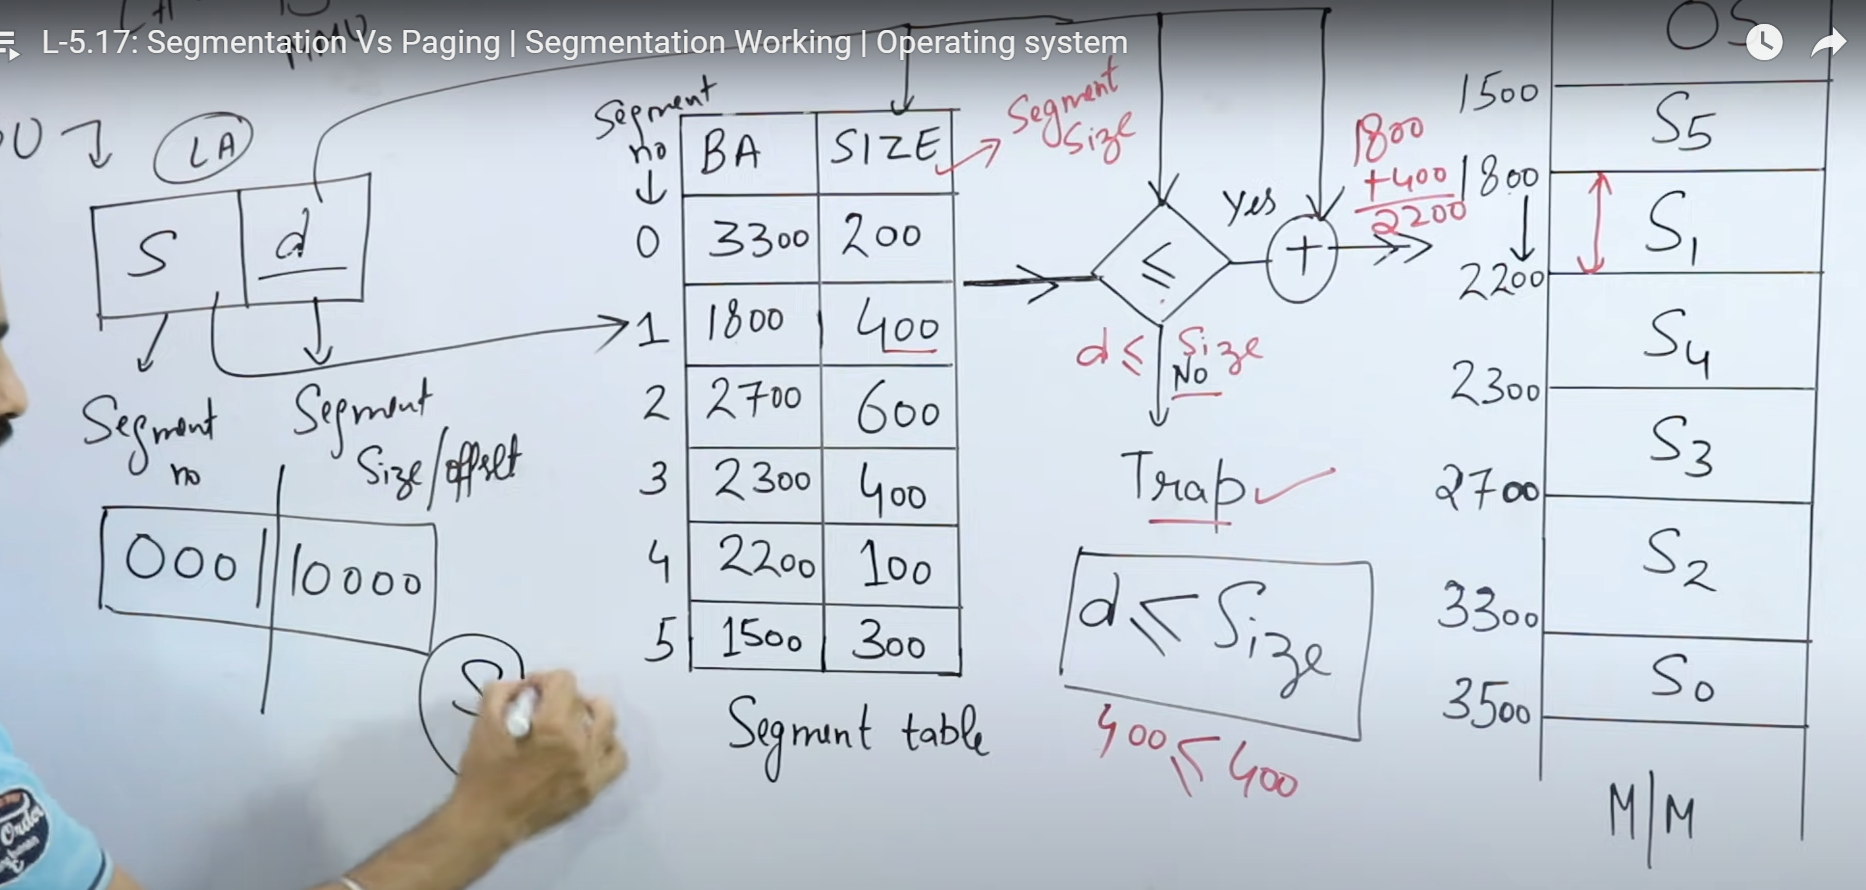 L-5.17: Segmentation Vs Paging | Segmentation Working | Operating system
LA
S d
Segment no
Segment Size/offset
000 10000
S
Segment no
BA SIZE
0 3300 200
1 1800 400
2 2700 600
3 2300 400
4 2200 100
5 1500 300
Segment table
Segment Size
≤
Yes
+
d ≤ Size
No
Trap
d ≤ Size
400 ≤ 400
1800
+400
2200
OS
1500
S5
1800
S1
2200
S4
2300
S3
2700
S2
3300
S0
3500
M/M